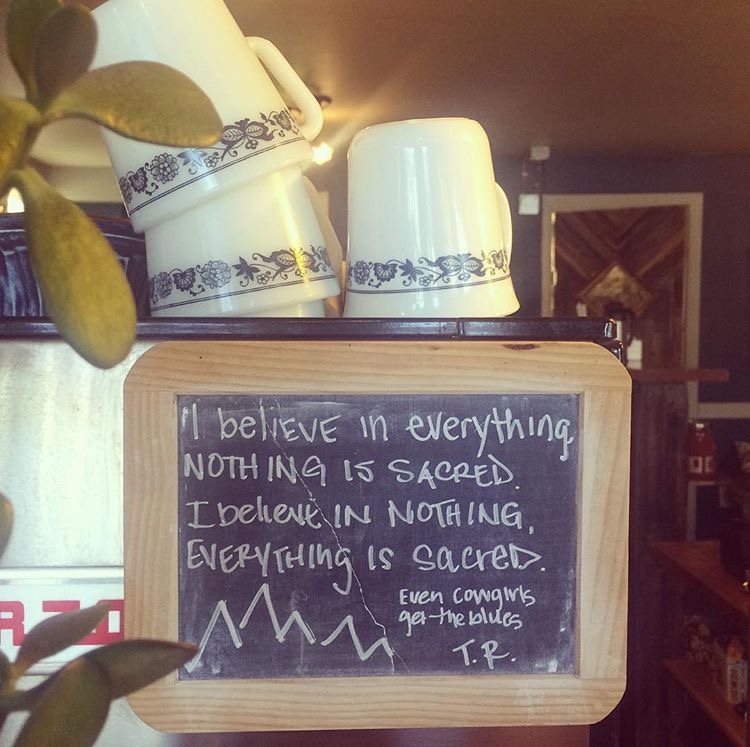 "I believe in everything,
NOTHING IS SACRED.
I believe IN NOTHING,
EVERYTHING IS SACRED.
Even cowgirls
get the blues
T.R.